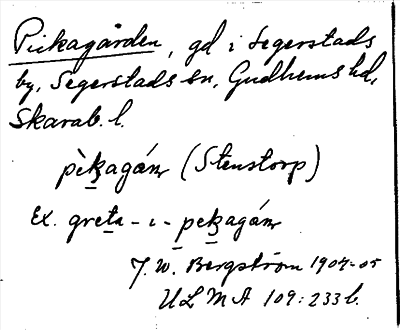 Pickagården, gd i Segerstads
by, Segerstads sn, Gudhems hd,
Skarab. l.
pèkagáṇ (Stenstorp)
Ex. greta - ı - pekagáṇ
J. W. Bergström 1904-05
ULMA 109:233 b.